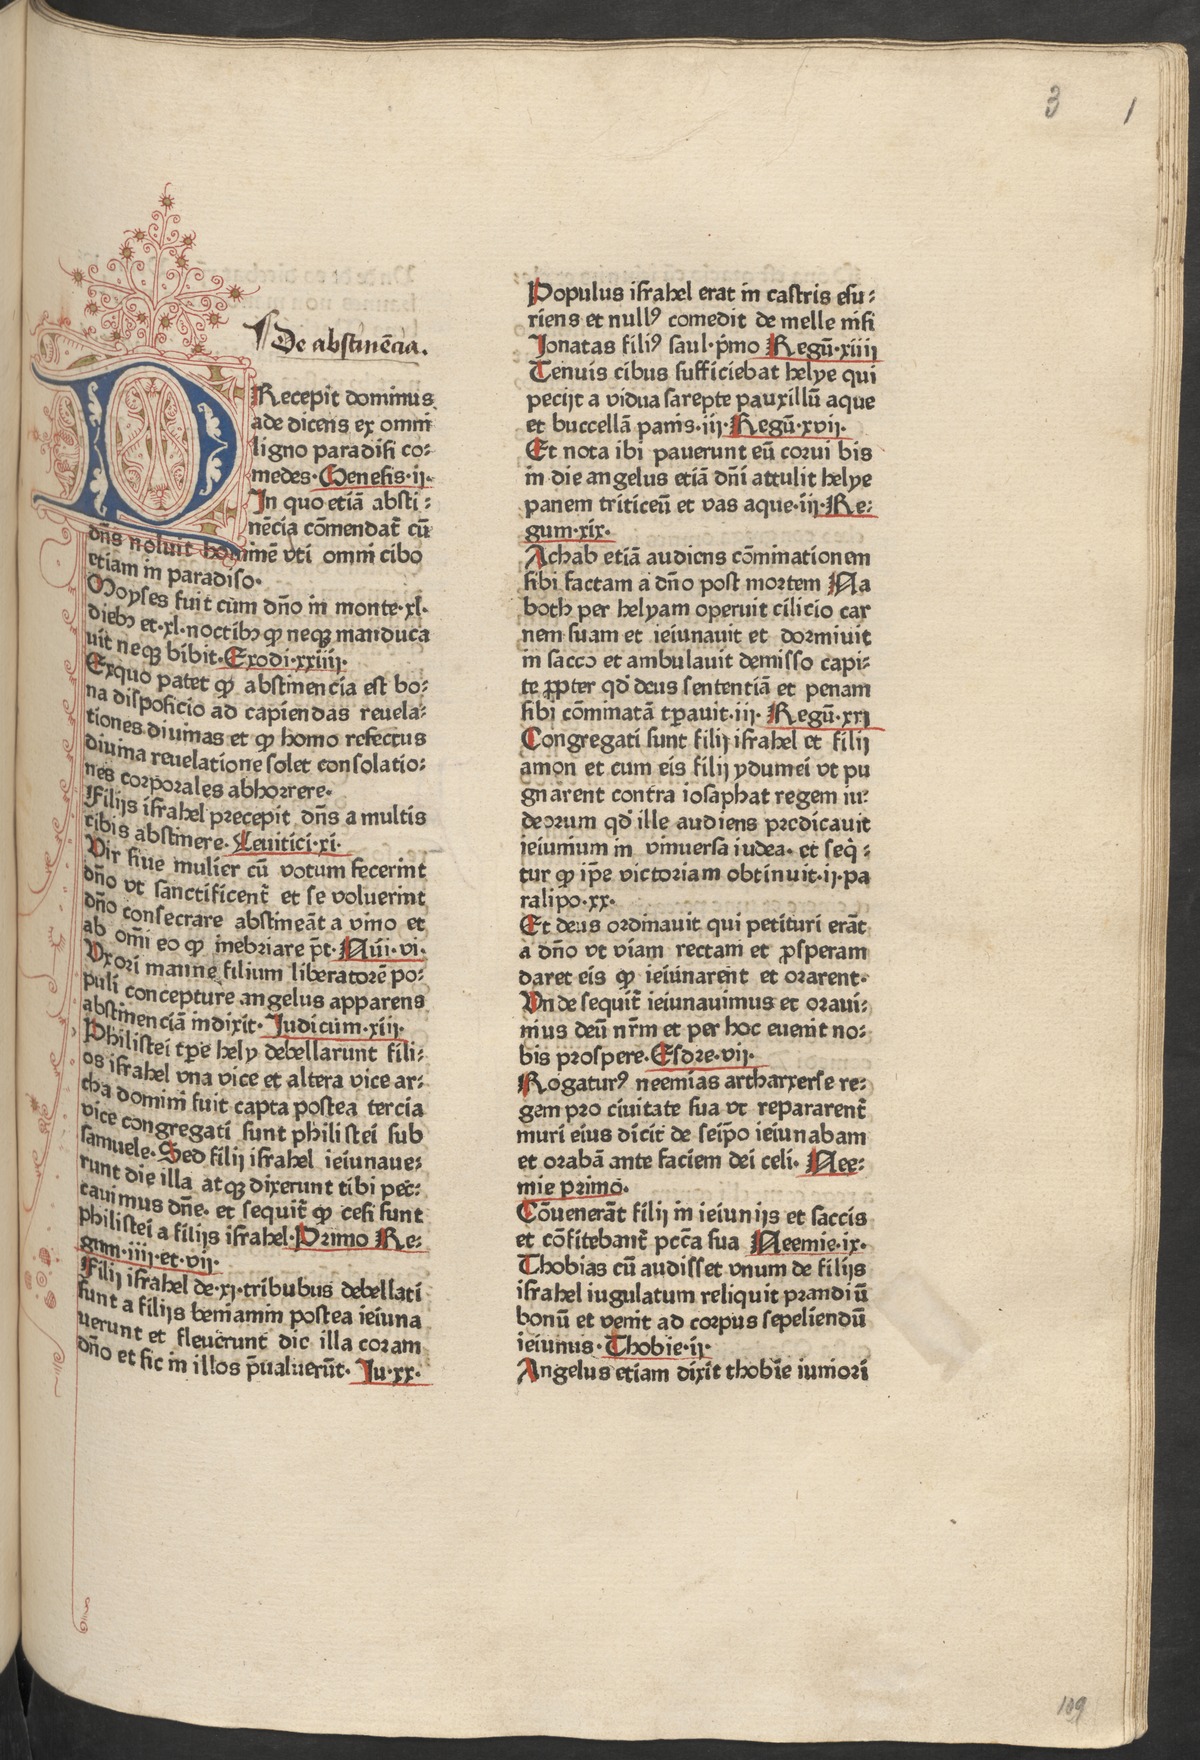 3 1
De abstinẽcia.
PRecepit dominus
ade dicens ex omni
ligno paradisi co⸗
medes·Genesis·ij·
In quo etiã absti⸗
nẽcia cõmendat᷑ cũ
dñs noluit hominẽ vti omni cibo
etiam in paradiso·
Moyses fuit cum dño in monte·xl·
dieb₃ et·xl·noctib₃ ꝙ neqꝫ manduca
uit neqꝫ bibit·Exodi·xxiiij·
Exquo patet ꝙ abstinencia est bo⸗
na disposicio ad capiendas reuela⸗
tiones diuinas et ꝙ homo refectus
diuina reuelatione solet consolatio⸗
nes corporales abhorrere·
Filijs israhel precepit dñs a multis
cibis abstinere·Leuitici·xi·
Vir siue mulier cũ votum fecerint
dño vt sanctificent᷑ et se voluerint
dño consecrare abstineãt a vino et
ab om̃i eo ꝙ inebriare p̃t·Nũi·vi·
Vxori manue filium liberatorẽ po⸗
puli concepture angelus apparens
abstinenciã indixit·Judicum·xiij·
Philistei tp̃e hely debellarunt fili⸗
os israhel vna vice et altera vice ar⸗
cha domini fuit capta postea tercia
vice congregati sunt philistei sub
samuele·Sed filij israhel ieiunaue⸗
runt die illa atqꝫ dixerunt tibi pec⸗
cauimus dñe· et sequit᷑ ꝙ cesi sunt
philistei a filijs israhel·Primo Re⸗
gum·iiij·et·vij·
Filij israhel de·xj·tribubus debellati
sunt a filijs beniamin postea ieiuna
uerunt et fleuerunt die illa coram
dño et sic in illos p̃ualuerũt·Ju·xx·
Populus israhel erat in castris esu⸗
riens et null⁹ comedit de melle nisi
Jonatas fili⁹ saul·p̃mo Regũ·xiiij
Tenuis cibus sufficiebat helye qui
pecijt a vidua sarepte pauxillũ aque
et buccellã panis·iij·Regũ·xvij·
Et nota ibi pauerunt eũ corui bis
in die angelus etiã dñi attulit helye
panem triticeũ et vas aque·iij·Re⸗
gum·xix·
Achab etiã audiens cõminationem
sibi factam a dño post mortem Na
both per helyam operuit cilicio car
nem suam et ieiunauit et dormiuit
in sacco et ambulauit demisso capi⸗
te ꝓpter qd̃ deus sententiã et penam
sibi cõminatã tp̃auit·iij· Regũ·xxj
Congregati sunt filij israhel et filij
amon et cum eis filij ydumei vt pu
gnarent contra iosaphat regem iu⸗
deorum qd̃ ille audiens predicauit
ieiunium in vniuersa iudea· et seq̄⸗
tur ꝙ ip̃e victoriam obtinuit·ij·pa
ralipo·xx·
Et deus ordinauit qui petituri erãt
a dño vt viam rectam et ꝓsperam
daret eis ꝙ ieiunarent et orarent·
Vnde sequit᷑ ieiunauimus et oraui⸗
mus deũ nr̃m et per hoc euenit no⸗
bis prospere·Esdre·vij·
Rogatur⁹ neemias artharxerse re⸗
gem pro ciuitate sua vt repararent᷑
muri eius dicit de seip̃o ieiunabam
et orabã ante faciem dei celi· Nee⸗
mie primo·
Cõuenerãt filij in ieiunijs et saccis
et cõfitebant᷑ pcc̃a sua Neemie·ix·
Thobias cũ audisset vnum de filijs
israhel iugulatum reliquit prandiũ
bonũ et venit ad corpus sepeliendũ
ieiunus·Thobie·ij·
Angelus etiam dixit thobie iuniori
109